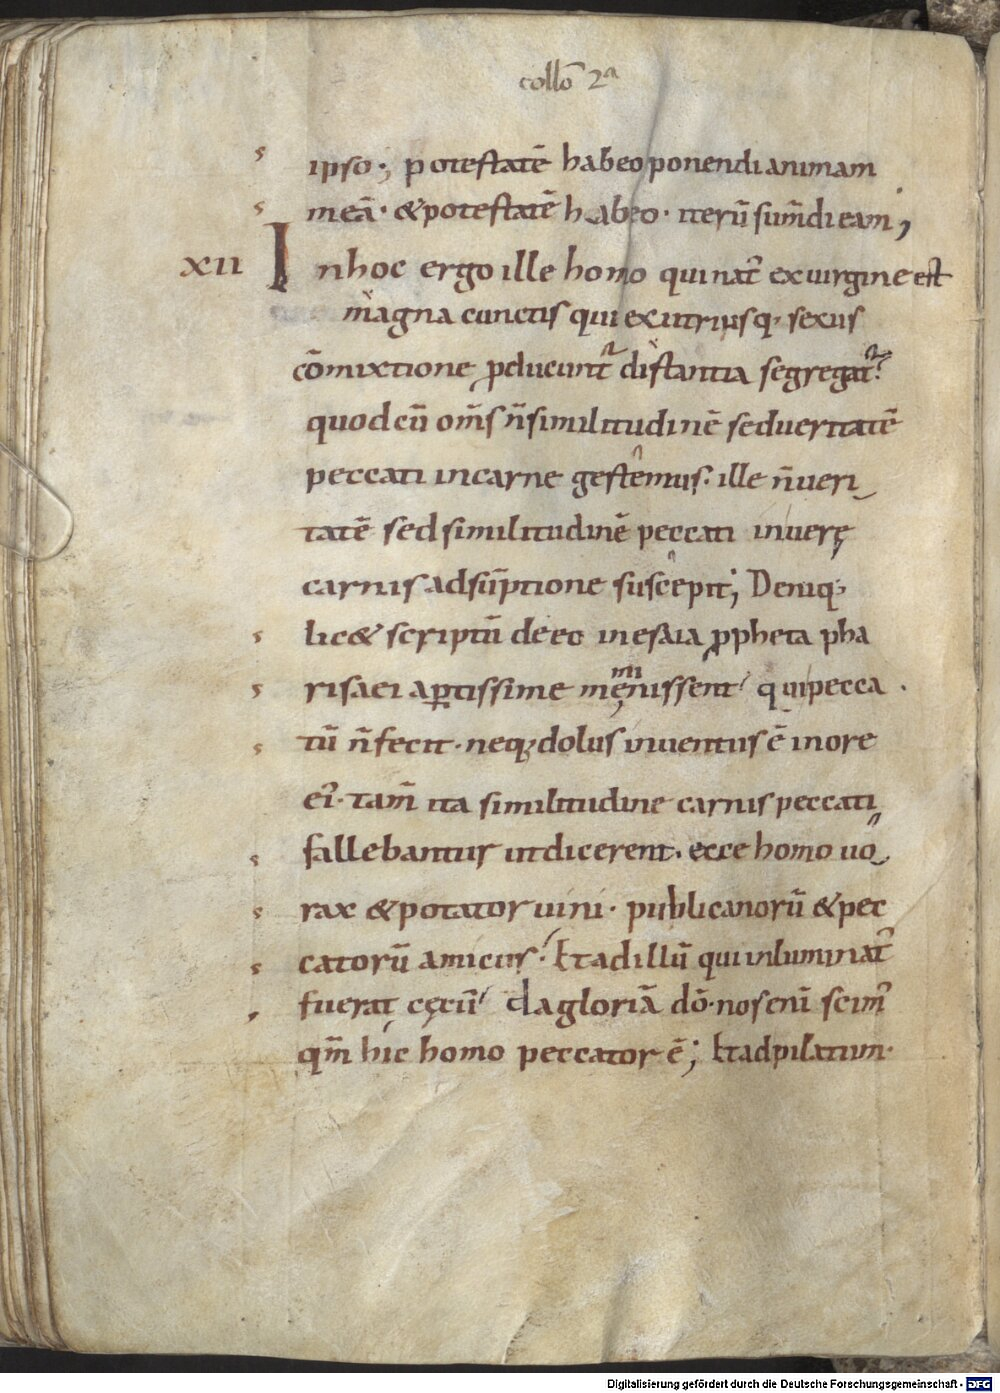 collo̅ 2ª
ipso·; potestatē habeo ponendi animam
meā· & potestatē habeo· iterū sum̄di eam;
xii In hoc ergo ille homo qui nat̄ ex uirgine est
magna cunctis qui ex utriusq; sexus
cōmixtione ꝓducunt᷑ distantia segregat᷑?
quod cū om̄s n̄ similitudinē sed ueritatē
peccati in carne gestemus· ille n̄ ueri
tatē sed similitudinē peccati in uerę
carnis adsūptione suscepit; Deniq;
lic& scriptū de eo in esaia ꝓpheta pha
risaei aꝑtissime meminissent qui pecca
tū n̄ fecit· neq; dolus inuentus ē in ore
ei᷒· tam̄ ita similitudine carnis peccati
fallebantur ut dicerent· ecce homo uo
rax & potator uini· publicanorū & pec
catorū amicus· Et ad illū qui inluminat᷒
fuerat cęcū da gloriā dō· nos eni scim᷒
qm̄ hic homo peccator ē; Et ad pilatum·